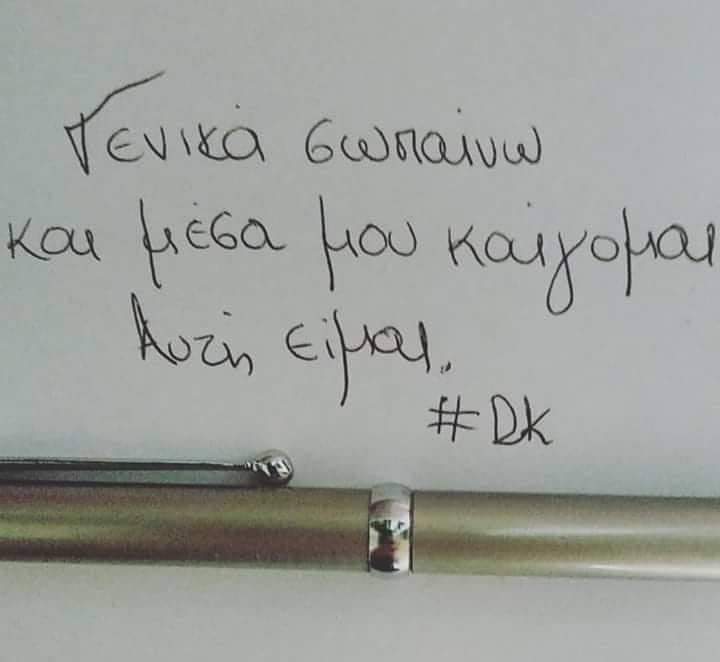 Γενικά σωπαίνω
και μέσα μου καίγομαι
Αυτή είμαι..
#DK